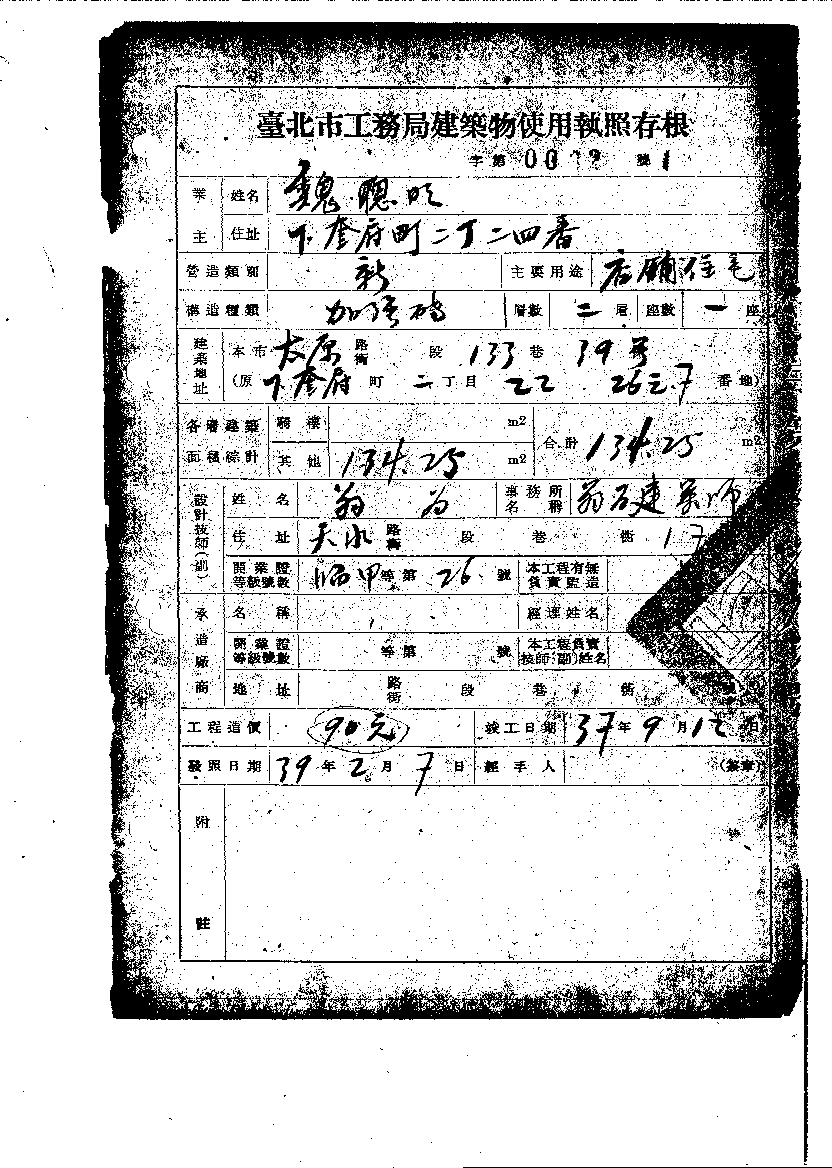 臺北市工務局建築物使用執照存根
字第 00 號 1
業主 姓名 魏聰
住址 下奎府町二丁二四番
營造類別 新 主要用途 店鋪住宅
構造種類 加強磚 層數 二 層 座數 一 座
建築地址 本市 太原 路街 段 133 巷 39 号
(原 下奎府 町 二 丁目 22 26之7 番地)
各層建築面積綜計 騎樓 m2 合計 134.25 m2
其他 134.25 m2
設計技師(副) 姓名 翁 事務所名稱 翁 建 師
住址 天水 路街 段 巷 街 17
開業證等級號數 師甲 等第 26 號 本工程有無負責監造
承造廠商 名稱 經理姓名
開業證等級號數 等第 號 本工程負責技師(副)姓名
地址 路街 段 巷 街 號
工程造價 90元 竣工日期 37年9月12日
發照日期 39年2月7日 經手人 (簽章)
附註